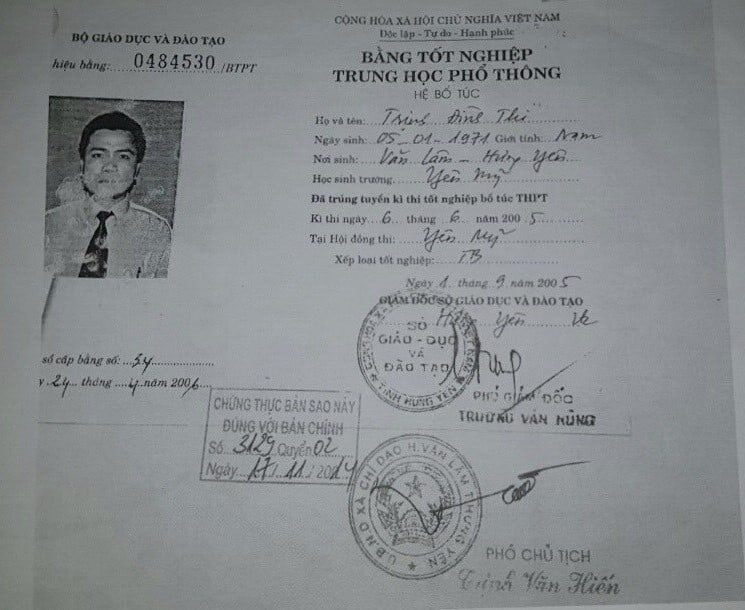 BỘ GIÁO DỤC VÀ ĐÀO TẠO
hiệu bằng: 0484530/BTPT
CỘNG HÒA XÃ HỘI CHỦ NGHĨA VIỆT NAM
Độc lập - Tự do - Hạnh phúc
BẰNG TỐT NGHIỆP
TRUNG HỌC PHỔ THÔNG
HỆ BỔ TÚC
Họ và tên: Trịnh Đình Thi
Ngày sinh: 05-01-1971 Giới tính: Nam
Nơi sinh: Văn Lâm - Hưng Yên
Học sinh trường Yên Mỹ
Đã trúng tuyển kì thi tốt nghiệp bổ túc THPT
Kì thi ngày 6 tháng 6 năm 2005
Tại Hội đồng thi: Yên Mỹ
Xếp loại tốt nghiệp: TB
Ngày 1 tháng 9 năm 2005
GIÁM ĐỐC SỞ GIÁO DỤC VÀ ĐÀO TẠO
Hưng Yên
CỘNG HÒA XÃ HỘI CHỦ NGHĨA VIỆT NAM
SỞ
GIÁO - DỤC
VÀ
ĐÀO TẠO
TỈNH HƯNG YÊN
PHÓ GIÁM ĐỐC
TRƯƠNG VĂN HÙNG
số cấp bằng số: 54
y 24 tháng 4 năm 2006
CHỨNG THỰC BẢN SAO NÀY
ĐÚNG VỚI BẢN CHÍNH
Số 3129 Quyển 02
Ngày 17/11/2014
U.B.N.D XÃ CHỈ ĐẠO H.VĂN LÂM T.HƯNG YÊN
PHÓ CHỦ TỊCH
Trịnh Văn Hiến